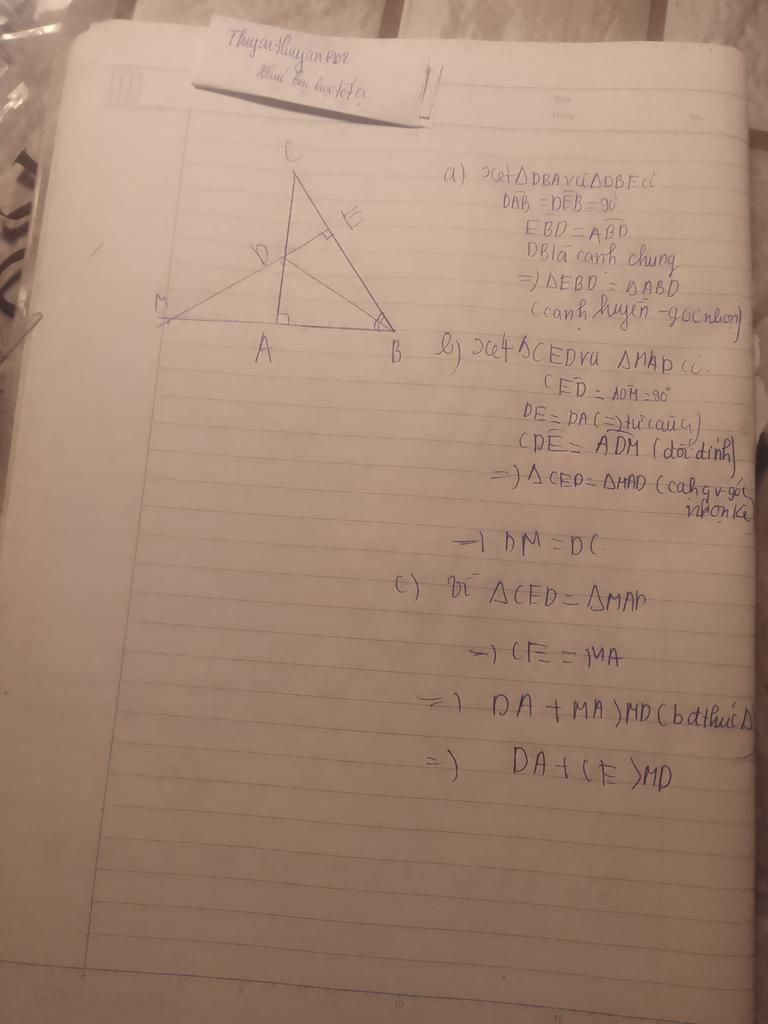 Thuyan-thuyan1902
chúc bạn học tốt ạ
C
E
D
M
A
B
a) xét ΔDBA và ΔDBE có
DAB = DEB = 90°
EBD = ABD
DB là cạnh chung
=) ΔEBD = ΔABD
(cạnh huyền - góc nhọn)
b) xét ΔCED và ΔMAD có.
CED = ADM = 90°
DE = DA (=) từ câu a)
CDE = ADM (đối đỉnh)
=) ΔCED = ΔMAD (cạh gv - góc
nhọn kề
=) DM = DC
c) vì ΔCED = ΔMAD
=) CE = MA
=) DA + MA > MD (bđthức Δ)
=) DA + CE > MD